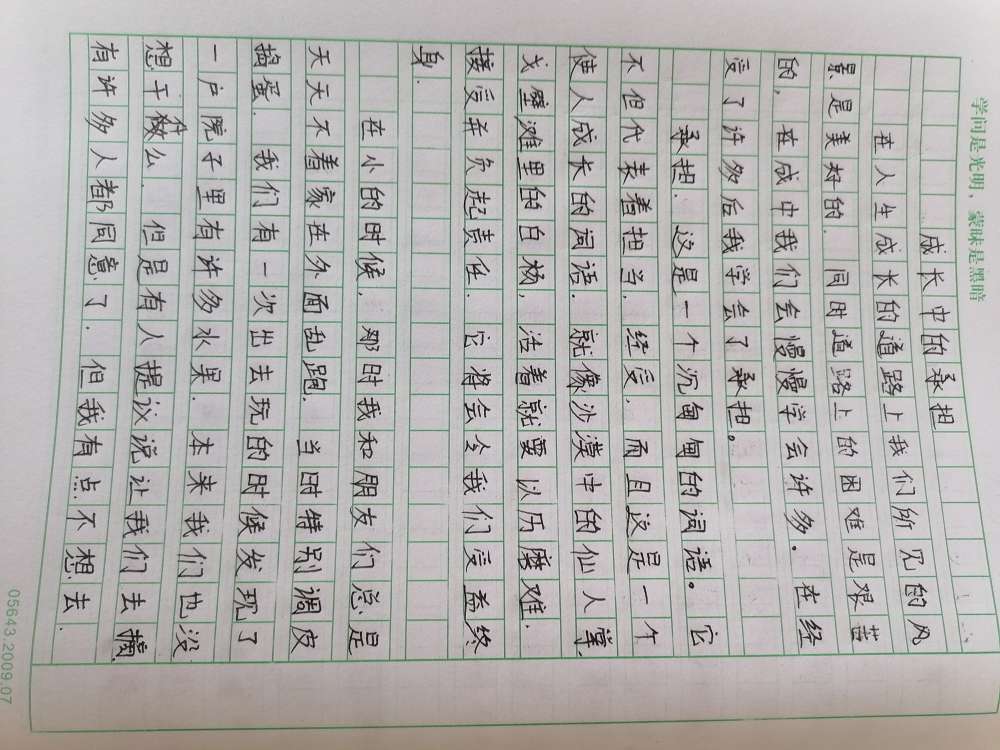 学问是光明，蒙昧是黑暗
成长中的承担
在人生成长的道路上我们所见的风
景是美好的.同时道路上的困难是艰苦
的,在成中我们会慢慢学会许多。在经
受了许多后我学会了承担。
承担.这是一个沉甸甸的词语。它
不但代表着担当,经受.而且这是一个
使人成长的词语.就像沙漠中的仙人掌,
戈壁滩里的白杨,活着就要以历磨难.
接受并负起责任.它将会令我们受益终
身.
在小的时候,那时我和朋友们总是
天天不着家在外面乱跑.当时特别调皮
捣蛋.我们有一次出去玩的时候发现了
一户院子里有许多水果.本来我们也没
想干什么.但是有人提议说让我们去摘.
有许多人都同意了.但我有点不想去.
05643.2009.07